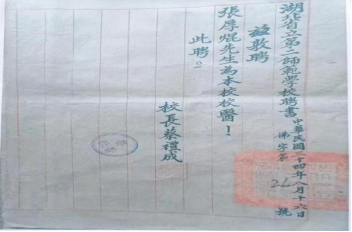 湖北省立第二師範學校聘書
中華民國二十四年八月十六日
佛字第 26 號
茲敦聘
張厚焜先生為本校校醫！
此聘。
校長蔡禮成